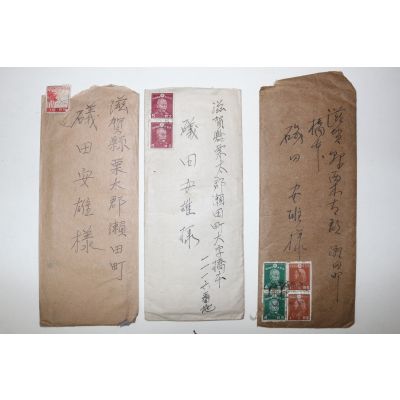 滋賀縣栗太郡瀬田町
礒田安雄様
滋賀縣栗太郡瀬田町大字橋本
礒田安雄様
滋賀縣栗太郡瀬田町
橋本
礒田安雄様